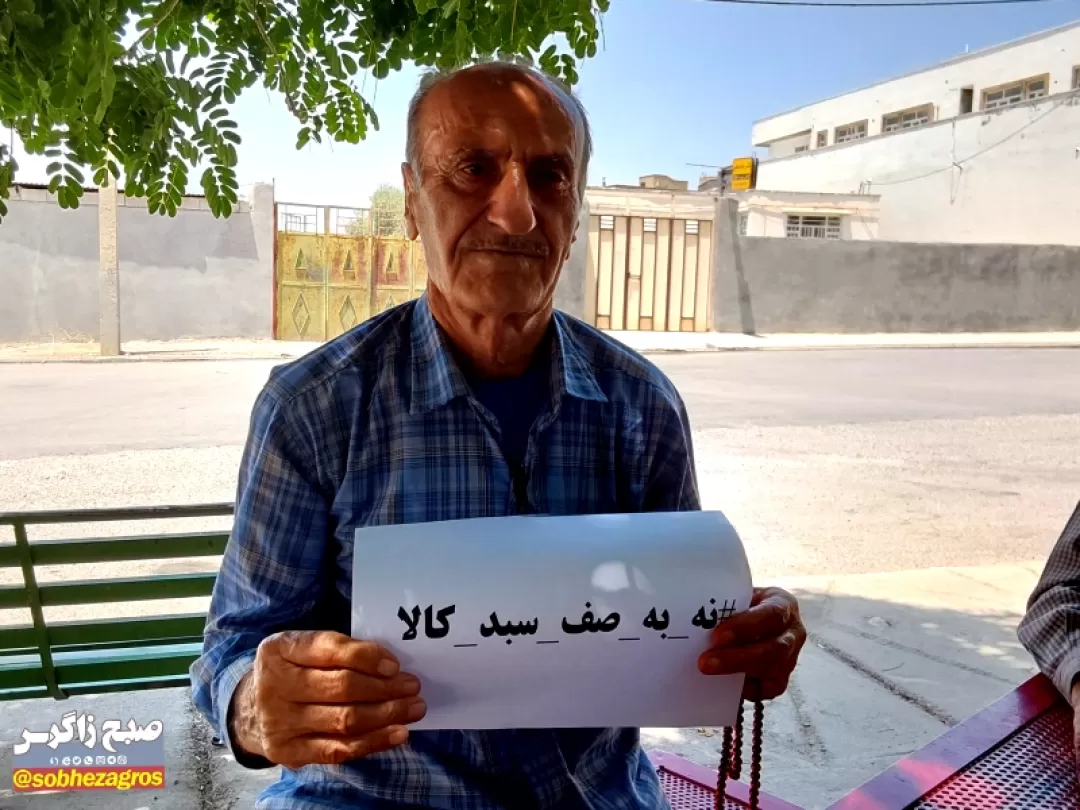 #نه_به_صف_سبد_کالا
صبح زاگرس
@sobhezagros